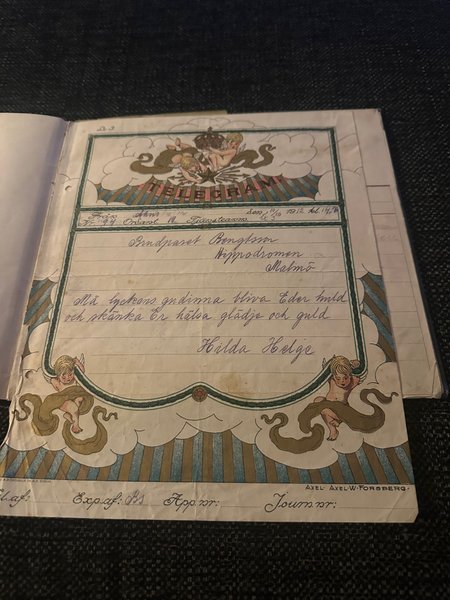 TELEGRAM
Brudparet Bengtson
Hippodromen
Malmö
Må lyckans gudinna bliva Eder huld
och skänka Er hälsa glädje och guld
Hilda Helge
AXEL AXEL-W-FORSBERG
Exp.af: App.nr: Journ.nr: